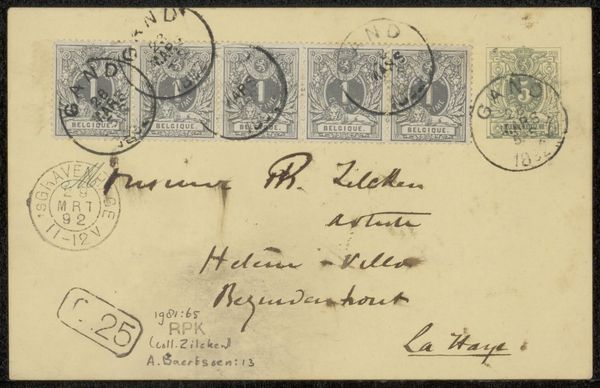 GAND
GAND
GAND
GAND
1 1 1 1 1
BELGIQUE. BELGIQUE. BELGIQUE. BELGIQUE. BELGIQUE.
5
Monsieur Ph. Zilcken
artiste
Helène-Villa
Bezuidenhout
La Haye.
'SGRAVENHAGE
29
MRT
92
11-12V
25
1981:65
RPK
(coll. Zilcken)
A. Baertsoen: 13